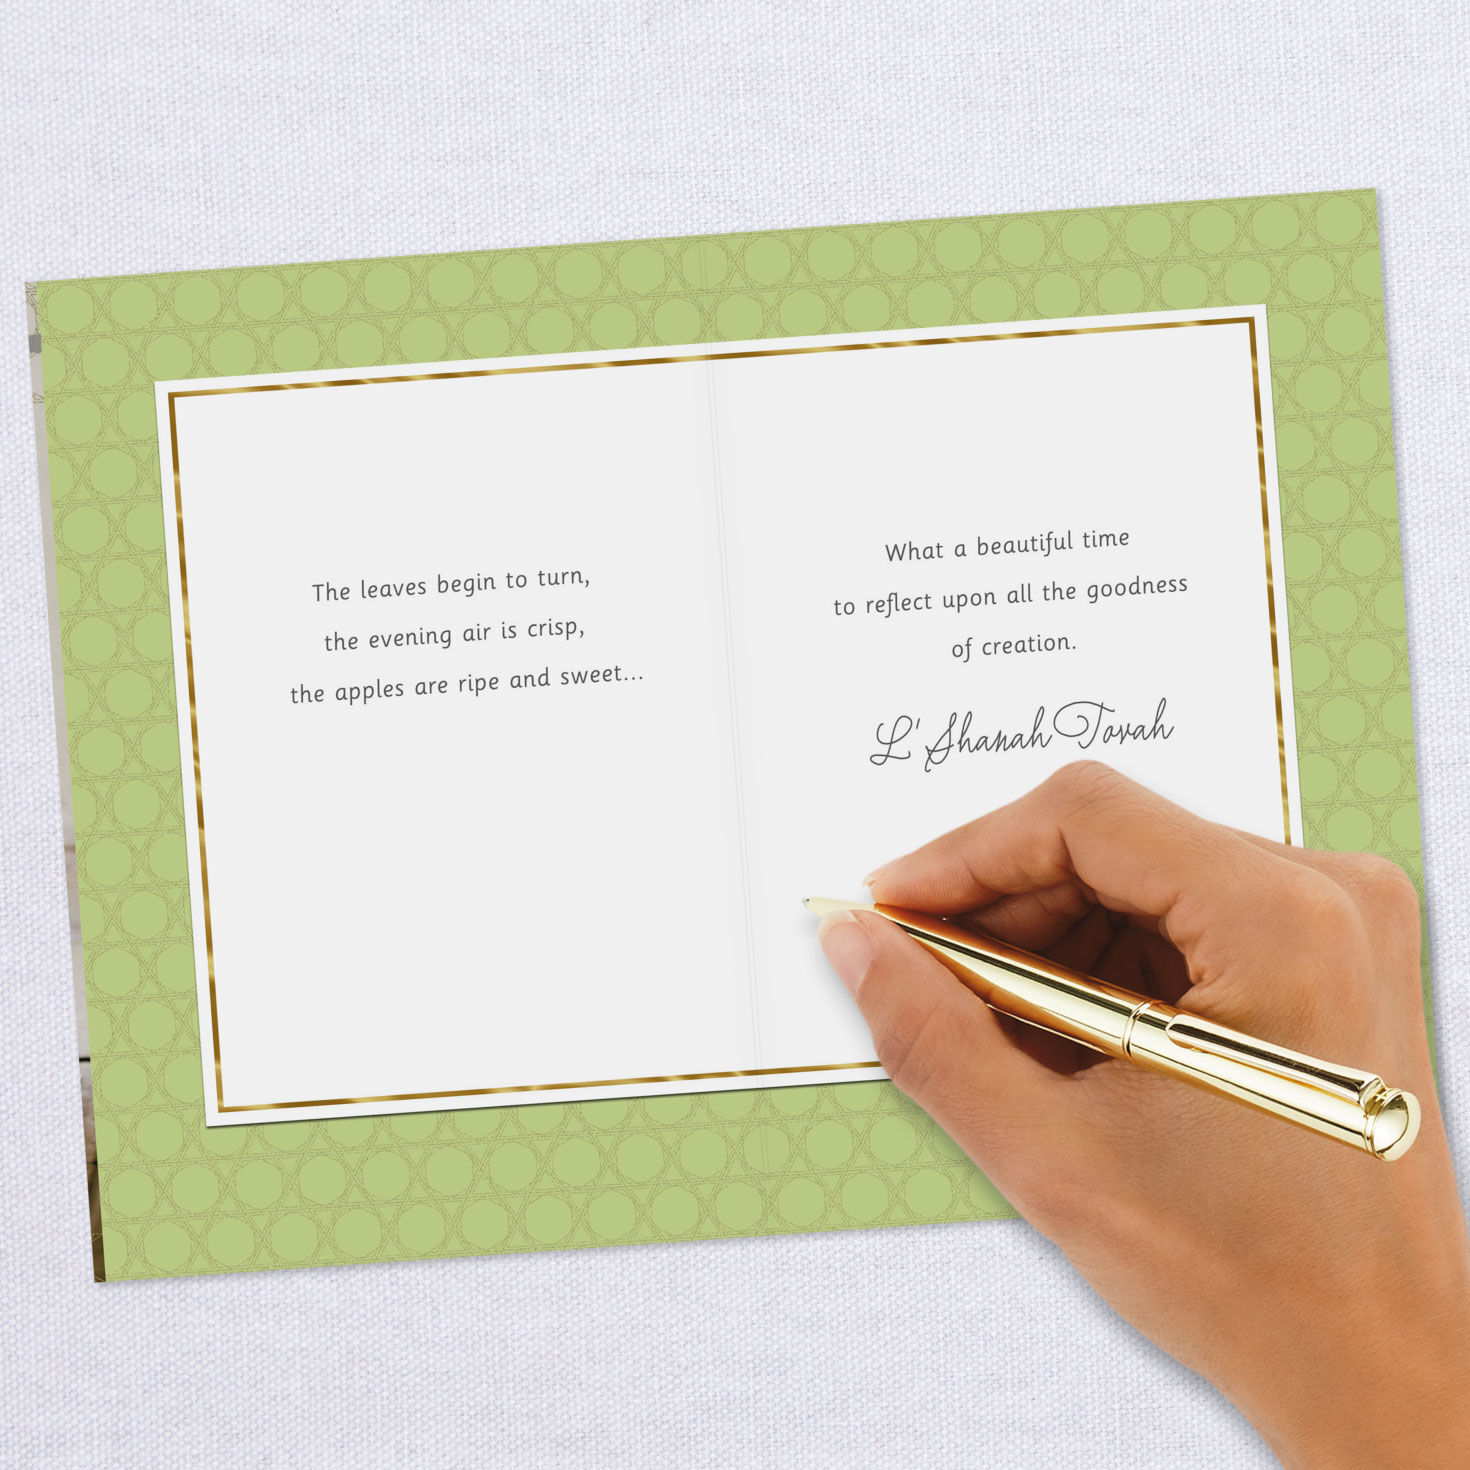 The leaves begin to turn,
the evening air is crisp,
the apples are ripe and sweet...
What a beautiful time
to reflect upon all the goodness
of creation.
L' Shanah Tovah